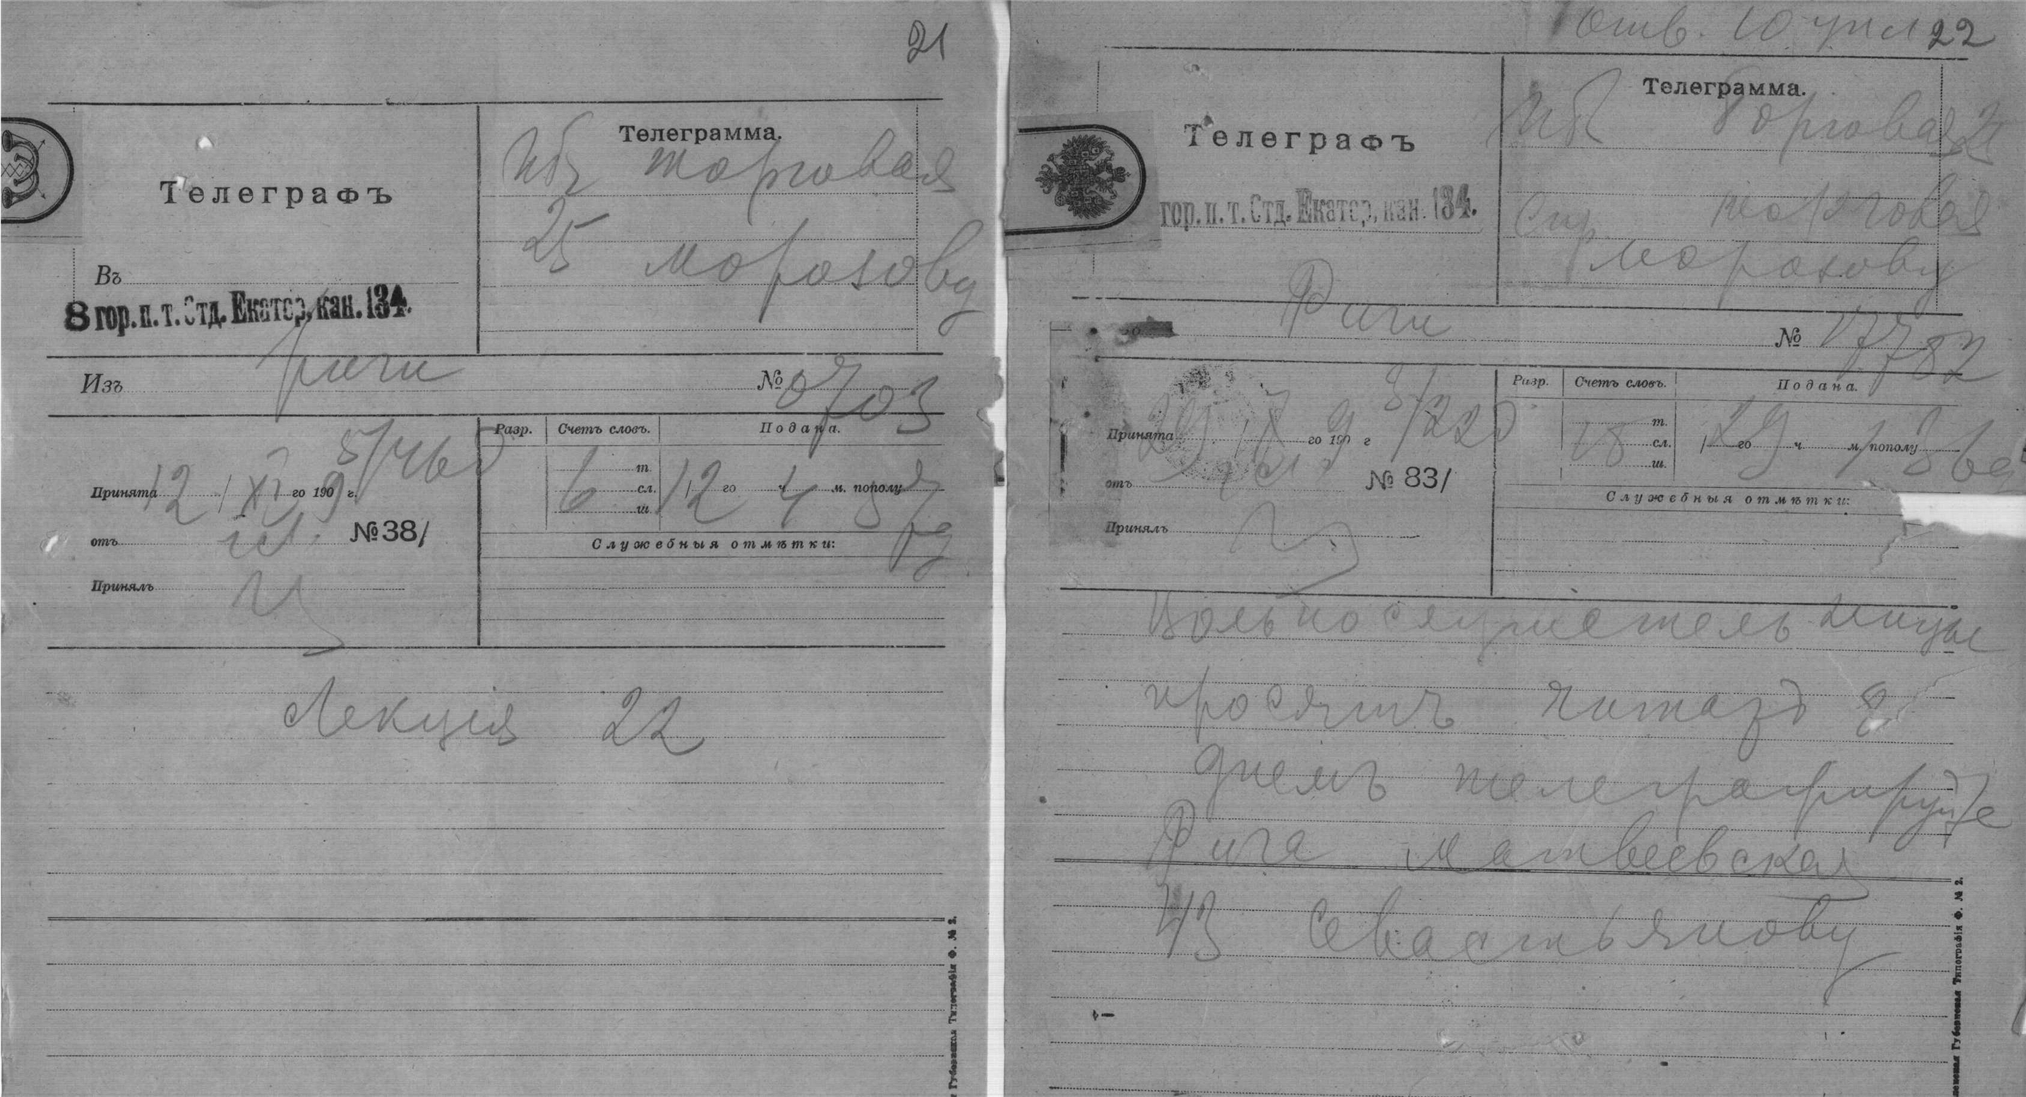 21
Телеграфъ
Въ
8 гор. п. т. Отд. Екатер. кан. 134.
Телеграмма.
торговая
25 морозову
Изъ Риги
№ 0703
5/460
Принята 12 / XI го 1909 г.
отъ
№38/
Принялъ
Разр. Счетъ словъ. Подана.
т.
6 сл. 12 го ч. м. пополу
ш.
Служебныя отмѣтки:
Лекція 22
Губернская Типографія Ф. № 2.
отв. 10
22
Телеграфъ
гор. п. т. Отд. Екатер. кан. 134.
Телеграмма.
торговая 25
Спб торговая
Морозову
Риги
№ 17782
3/220
Принята 29 го 1909 г
отъ
№ 83/
Принялъ
Разр. Счетъ словъ. Подана.
т.
18 сл. 29 го ч м. пополу
ш.
Служебныя отмѣтки:
Вольнослушательницы
просятъ читать 8
днемъ телеграфируйте
Рига матвеевская
43 Севастьянову
Губернская Типографія Ф. № 2.